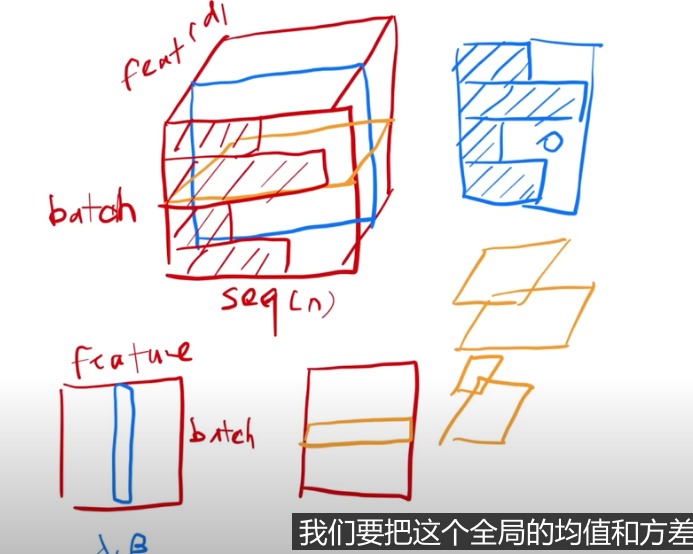 feat(d)
batch
seq(n)
0
feature
batch
我们要把这个全局的均值和方差